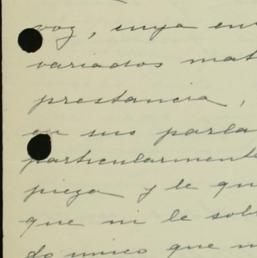 voz, cuya en
variados mat
prestancia,
en sus parla
particularmente
pieza y le qu
que ni le sob
do unico que m